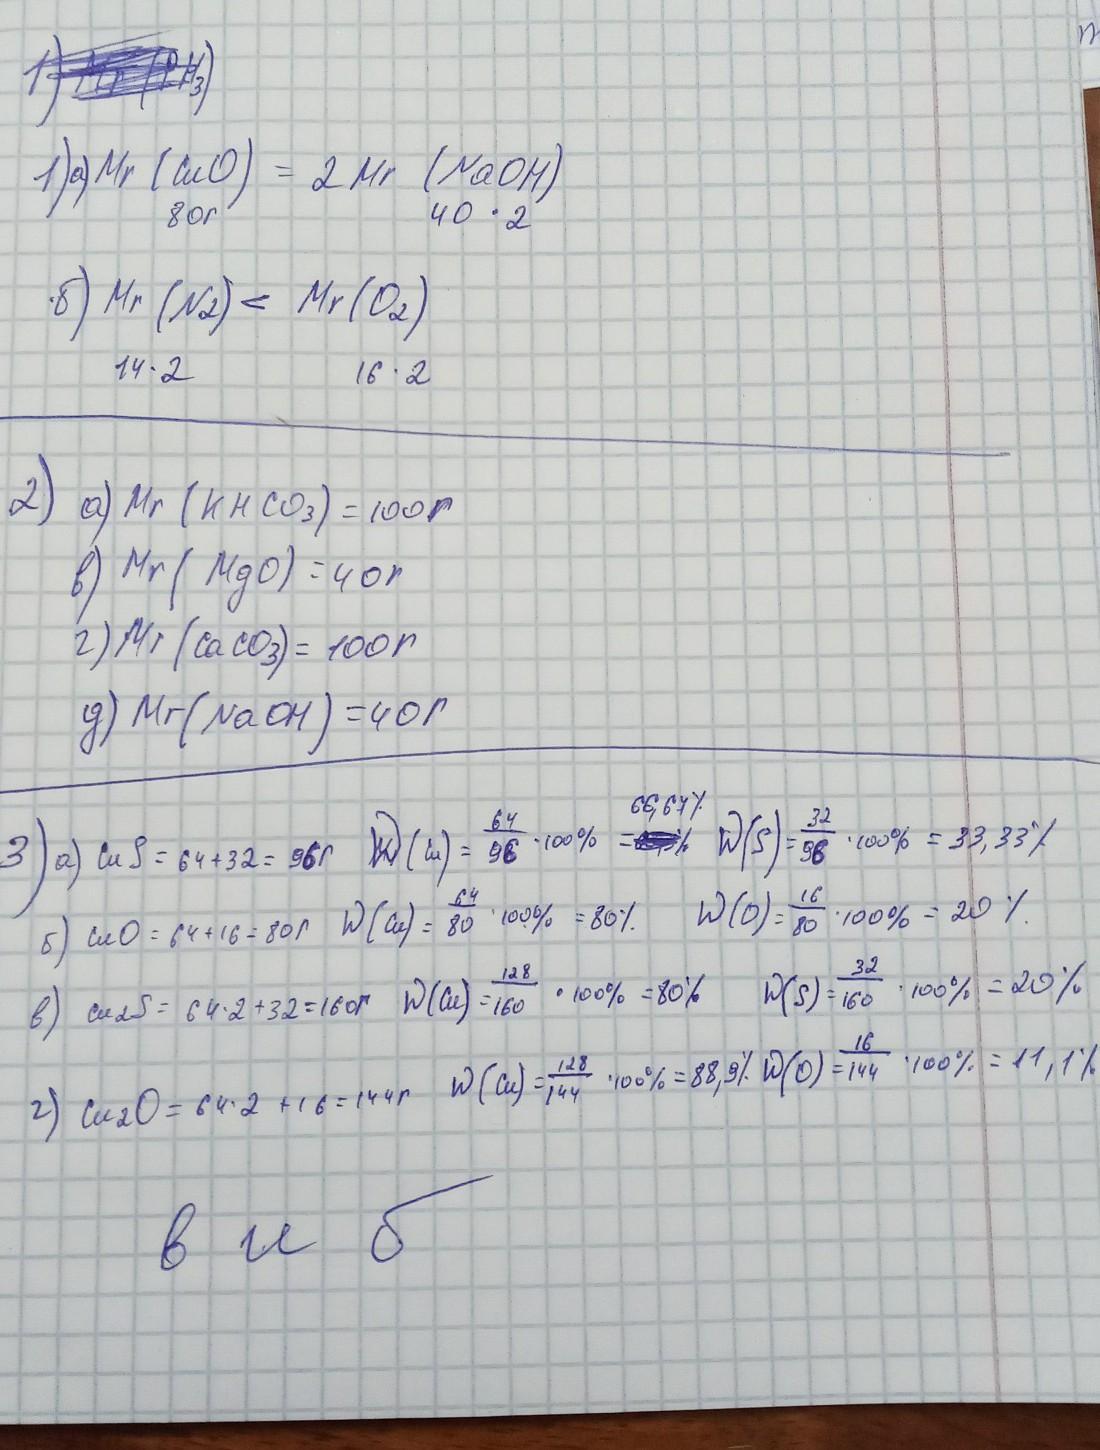 1)
1)а) Mr (CuO) = 2 Mr (NaOH)
80г 40 · 2
б) Mr (N2) < Mr (O2)
14·2 16·2
2) а) Mr (KHCO3) = 100г
в) Mr (MgO) = 40г
г) Mr (CaCO3) = 100г
д) Mr (NaOH) = 40г
3) а) CuS = 64+32 = 96г W(Cu) = 64/96 · 100% = 66,67% W(S) = 32/96 · 100% = 33,33%
б) CuO = 64+16 = 80г W(Cu) = 64/80 · 100% = 80%. W(O) = 16/80 · 100% = 20%.
в) Cu2S = 64·2+32 = 160г W(Cu) = 128/160 · 100% = 80% W(S) = 32/160 · 100% = 20%
г) Cu2O = 64·2 +16 = 144г W(Cu) = 128/144 · 100% = 88,9% W(O) = 16/144 · 100% = 11,1%
в и б